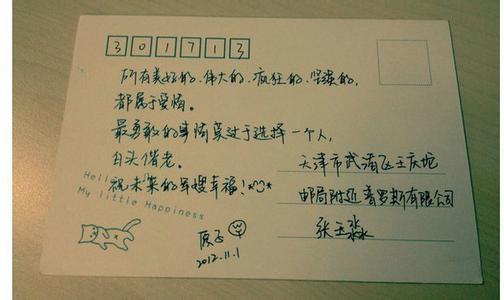 301713
所有美好的、伟大的、疯狂的、坚硬的,
都属于爱情。
最勇敢的事情莫过于选择一个人,
白头偕老。
祝未来的军嫂幸福!^ω^
Hello
My little Happiness
原子
2012.11.1
天津市武清区王庆坨
邮局附近 普罗斯有限公司
张玉淼